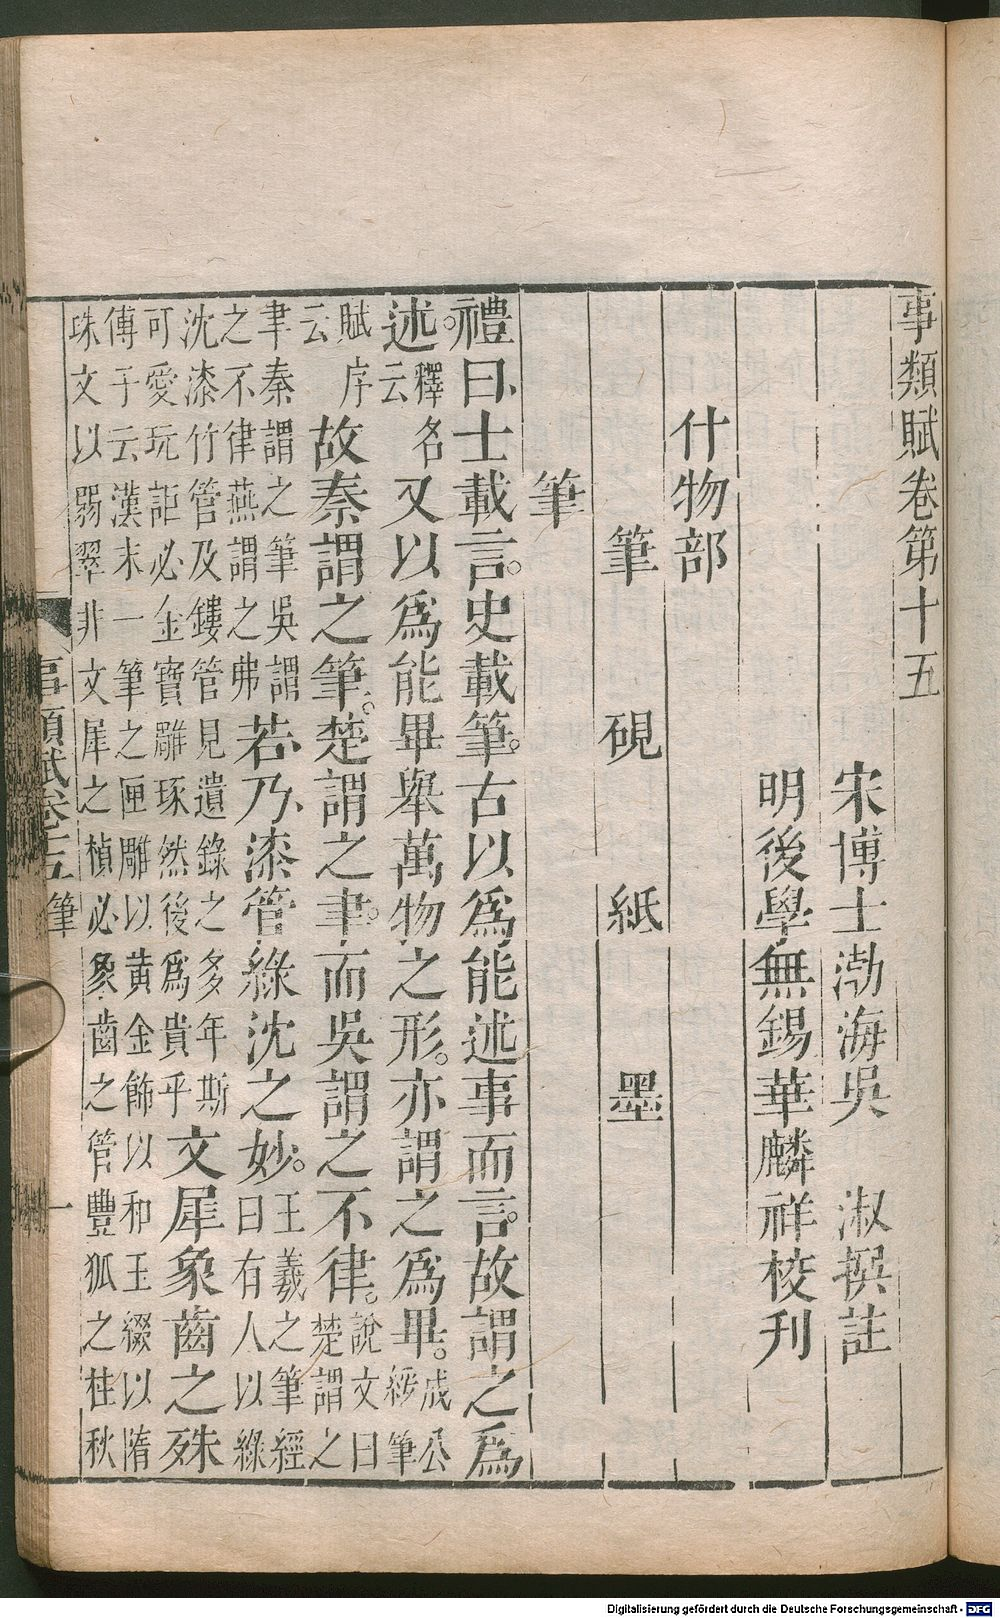 事類賦卷第十五
宋博士渤海吳淑撰註
明後學無錫華麟祥校刋
什物部
筆 硯 紙 墨
筆
禮曰士載言。史載筆。古以爲能述事而言。故謂之爲
述。釋名云又以爲能畢舉萬物之形。亦謂之爲畢。成公綏筆
賦序云故秦謂之筆。楚謂之聿。而吳謂之不律。說文曰楚謂之
聿秦謂之筆吳謂之不律燕謂之弗若乃漆管綠沈之妙。王羲之筆經曰有人以綠
沈漆竹管及鏤管見遺錄之多年斯可愛玩詎必金寶雕琢然後爲貴乎文犀象齒之殊
傅子云漢末一筆之匣雕以黄金飾以和玉綴以隋珠文以翡翠非文犀之楨必象齒之管豐狐之柱秋
事類賦卷十五 筆 一
Digitalisierung gefördert durch die Deutsche Forschungsgemeinschaft - DFG